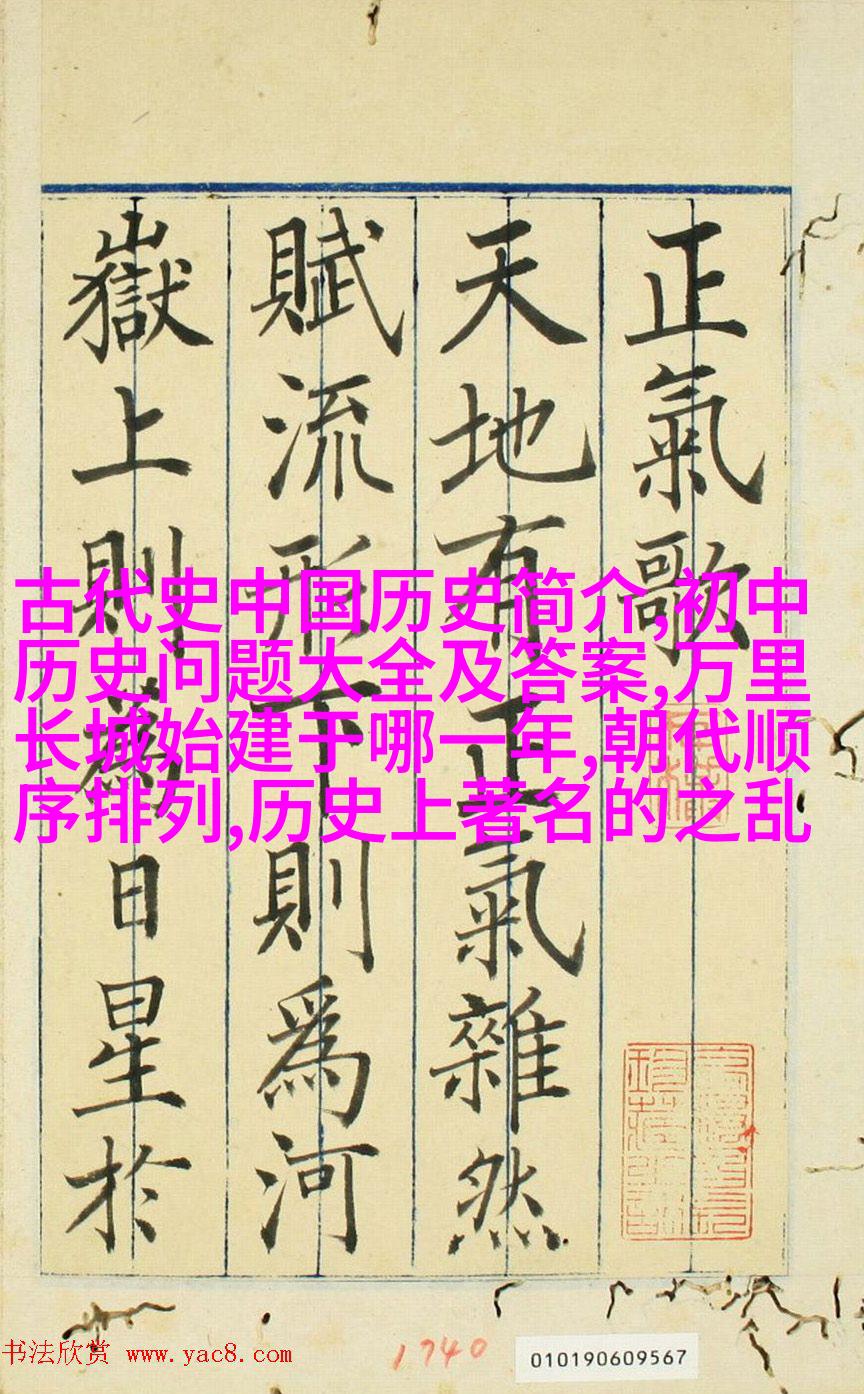 正氣歌
天地有正氣雜然
賦流形下則爲河
嶽上則為日星於
古代史中国历史简介,初中
历史问题大全及答案,万里
长城始建于哪一年,朝代顺
序排列,历史上著名的之乱
书法欣赏 www.yac8.com
1740
010190609567